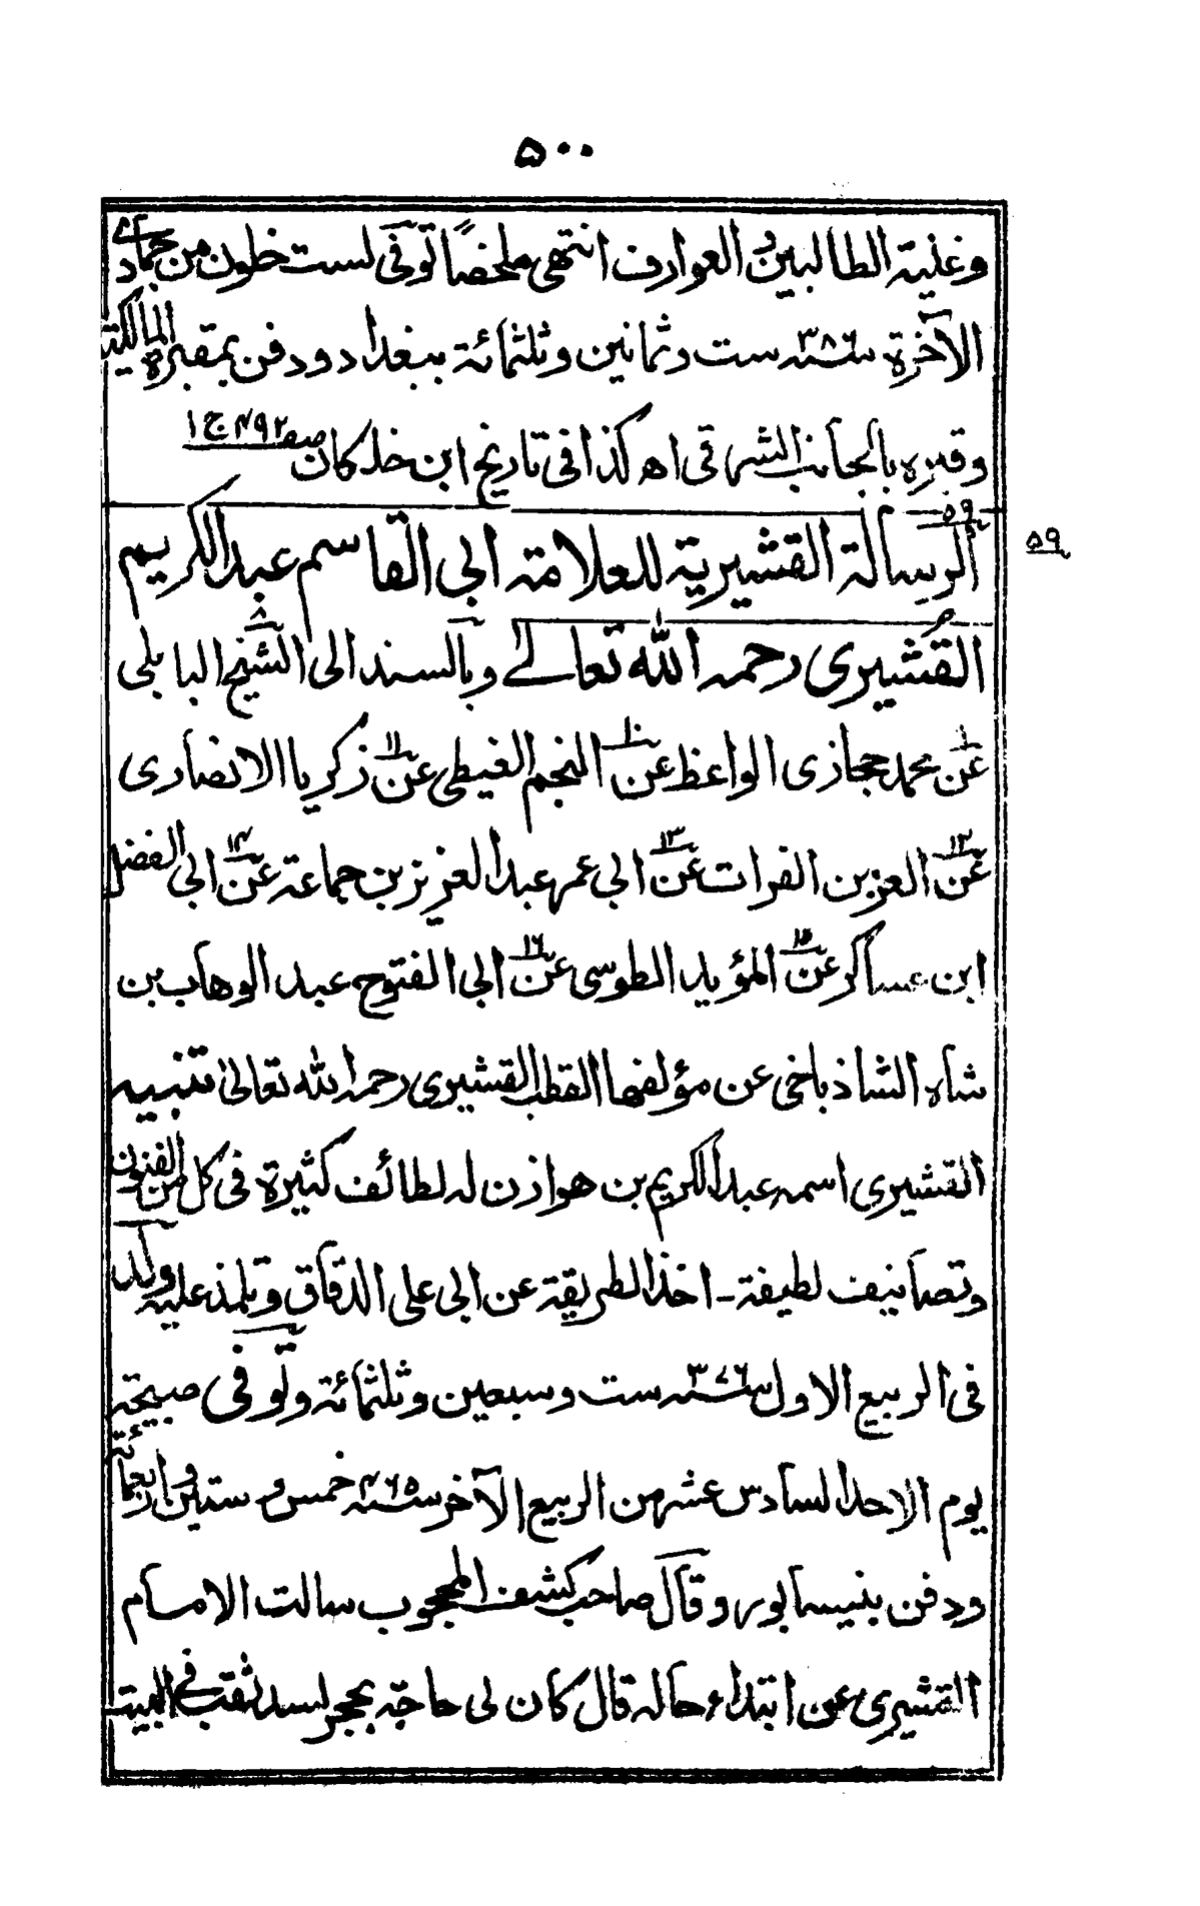 ۵۰۰
وغنية الطالبين والعوارف انتهى ملخصًا توفى لست خلون من جمادى
الآخرة سنة ۳۸۶ ست وثمانين وثلثمائة ببغداد ودفن بمقبرة المالكية
وقبره بالجانب الشرقى اھ كذا فى تاريخ ابن خلكان صـ ۴۹۲ ج ۱
۵۹
الرسالة القشيرية للعلامة ابى القاسم عبد الكريم
۵۹
القشيرى رحمه الله تعالى وبالسند الى الشيخ البابلى
عن محمد حجازى الواعظ عن ۱۰ النجم الغيطى عن ۱۱ زكريا الانصارى
عن ۱۲ العز بن الفرات عن ۱۳ ابى عمر عبد العزيز بن جماعة عن ۱۴ ابى الفضل
ابن عساكر عن ۱۵ المؤيد الطوسى عن ۱۶ ابى الفتوح عبد الوهاب بن
شاه الشاذباخى عن مؤلفها القطب القشيرى رحمه الله تعالىٰ تنبيه
القشيرى اسمه عبد الكريم بن هوازن له لطائف كثيرة فى كل من الفنون
وتصانيف لطيفة ـ اخذ الطريقة عن ابى على الدقاق وتلمذ عليه ولد
فى الربيع الاول سنة ۳۷۶ ست وسبعين وثلثمائة وتوفى صبيحة
يوم الاحد السادس عشر من الربيع الآخر سنة ۴۶۵ خمس وستين واربعمائة
ودفن بنيسابور وقال صاحب كشف المحجوب سالت الامام
القشيرى عن ابتداء حاله قال كان لى حاجة بحجر لسد ثقب فى البيت